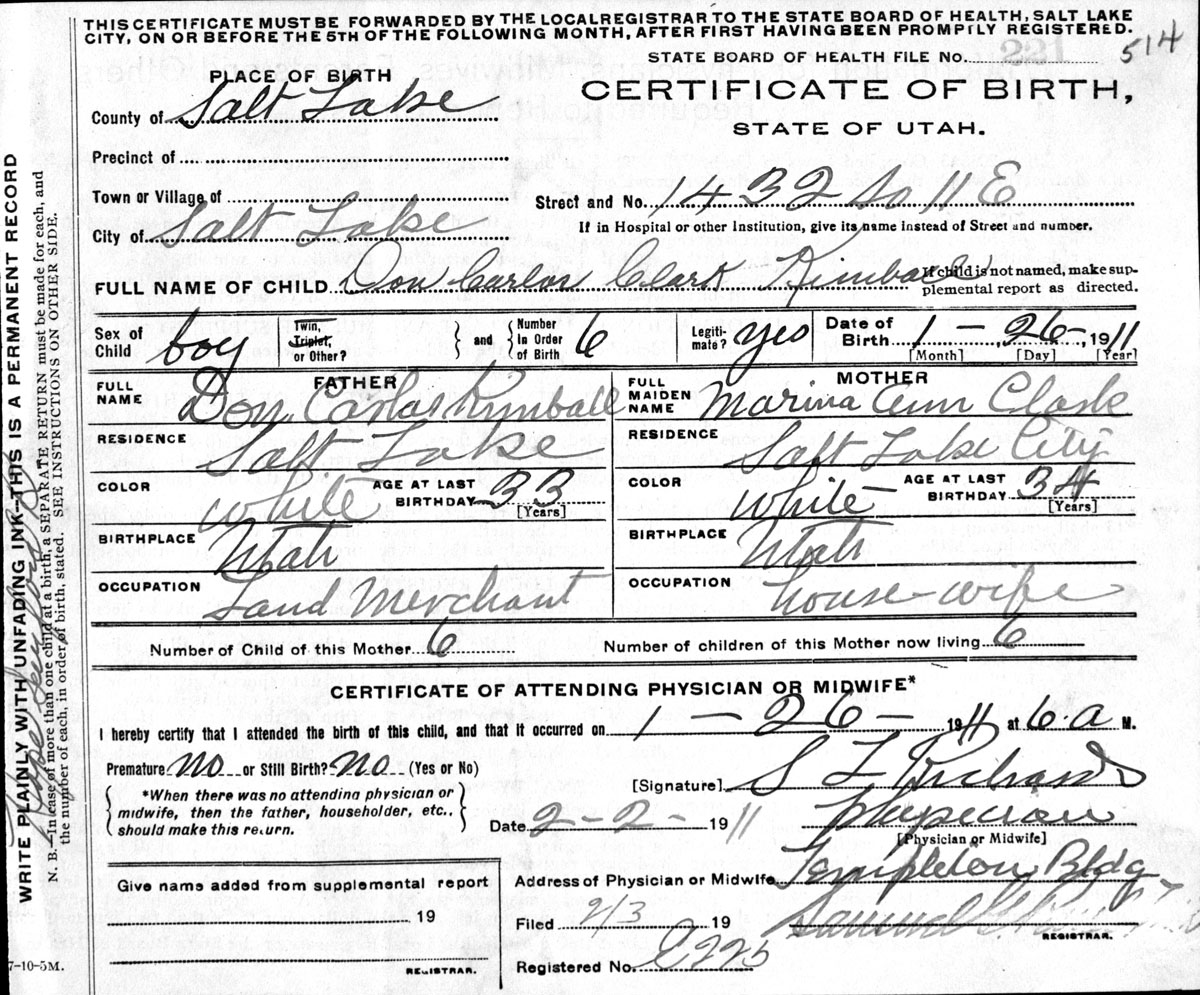 THIS CERTIFICATE MUST BE FORWARDED BY THE LOCALREGISTRAR TO THE STATE BOARD OF HEALTH, SALT LAKE
CITY, ON OR BEFORE THE 5TH OF THE FOLLOWING MONTH, AFTER FIRST HAVING BEEN PROMPTLY REGISTERED.
514
STATE BOARD OF HEALTH FILE No. 221
PLACE OF BIRTH
CERTIFICATE OF BIRTH,
STATE OF UTAH.
County of Salt Lake
Precinct of
Town or Village of
Street and No. 1432 So 11 E
City of Salt Lake
If in Hospital or other Institution, give its name instead of Street and number.
FULL NAME OF CHILD Don Carlos Clark Kimball
If child is not named, make sup-
plemental report as directed.
Sex of Child boy
Twin, Triplet, or Other?
and
Number In Order of Birth 6
Legiti-mate? yes
Date of Birth 1-26-, 1911
[Month] [Day] [Year]
FATHER
FULL NAME Don Carlos Kimball
RESIDENCE Salt Lake
COLOR White AGE AT LAST BIRTHDAY 33
[Years]
BIRTHPLACE Utah
OCCUPATION Land Merchant
MOTHER
FULL MAIDEN NAME Marina Ann Clark
RESIDENCE Salt Lake City
COLOR White AGE AT LAST BIRTHDAY 34
[Years]
BIRTHPLACE Utah
OCCUPATION house-wife
Number of Child of this Mother 6 Number of children of this Mother now living 6
CERTIFICATE OF ATTENDING PHYSICIAN OR MIDWIFE*
I hereby certify that I attended the birth of this child, and that it occurred on 1-26- 1911 at 6.a M.
Premature no or Still Birth? no (Yes or No)
*When there was no attending physician or
midwife, then the father, householder, etc.,
should make this return.
[Signature] S L Richards
Date 2-2- 1911 Physician
[Physician or Midwife]
Give name added from supplemental report
19
REGISTRAR.
Address of Physician or Midwife Templeton Bldg
Filed 2/3 19 Samuel G
REGISTRAR.
Registered No.
7-10-5M.
WRITE PLAINLY WITH UNFADING INK—THIS IS A PERMANENT RECORD
N. B.—In case of more than one child at a birth, a SEPARATE RETURN must be made for each, and
the number of each, in order of birth, stated. SEE INSTRUCTIONS ON OTHER SIDE.